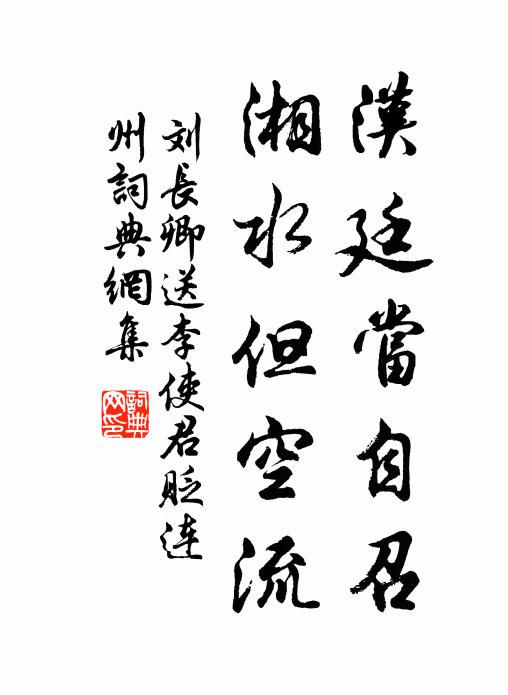 漢廷當自召
湘水但空流
刘長卿送李使君貶連
州詞典網集
詞典网印